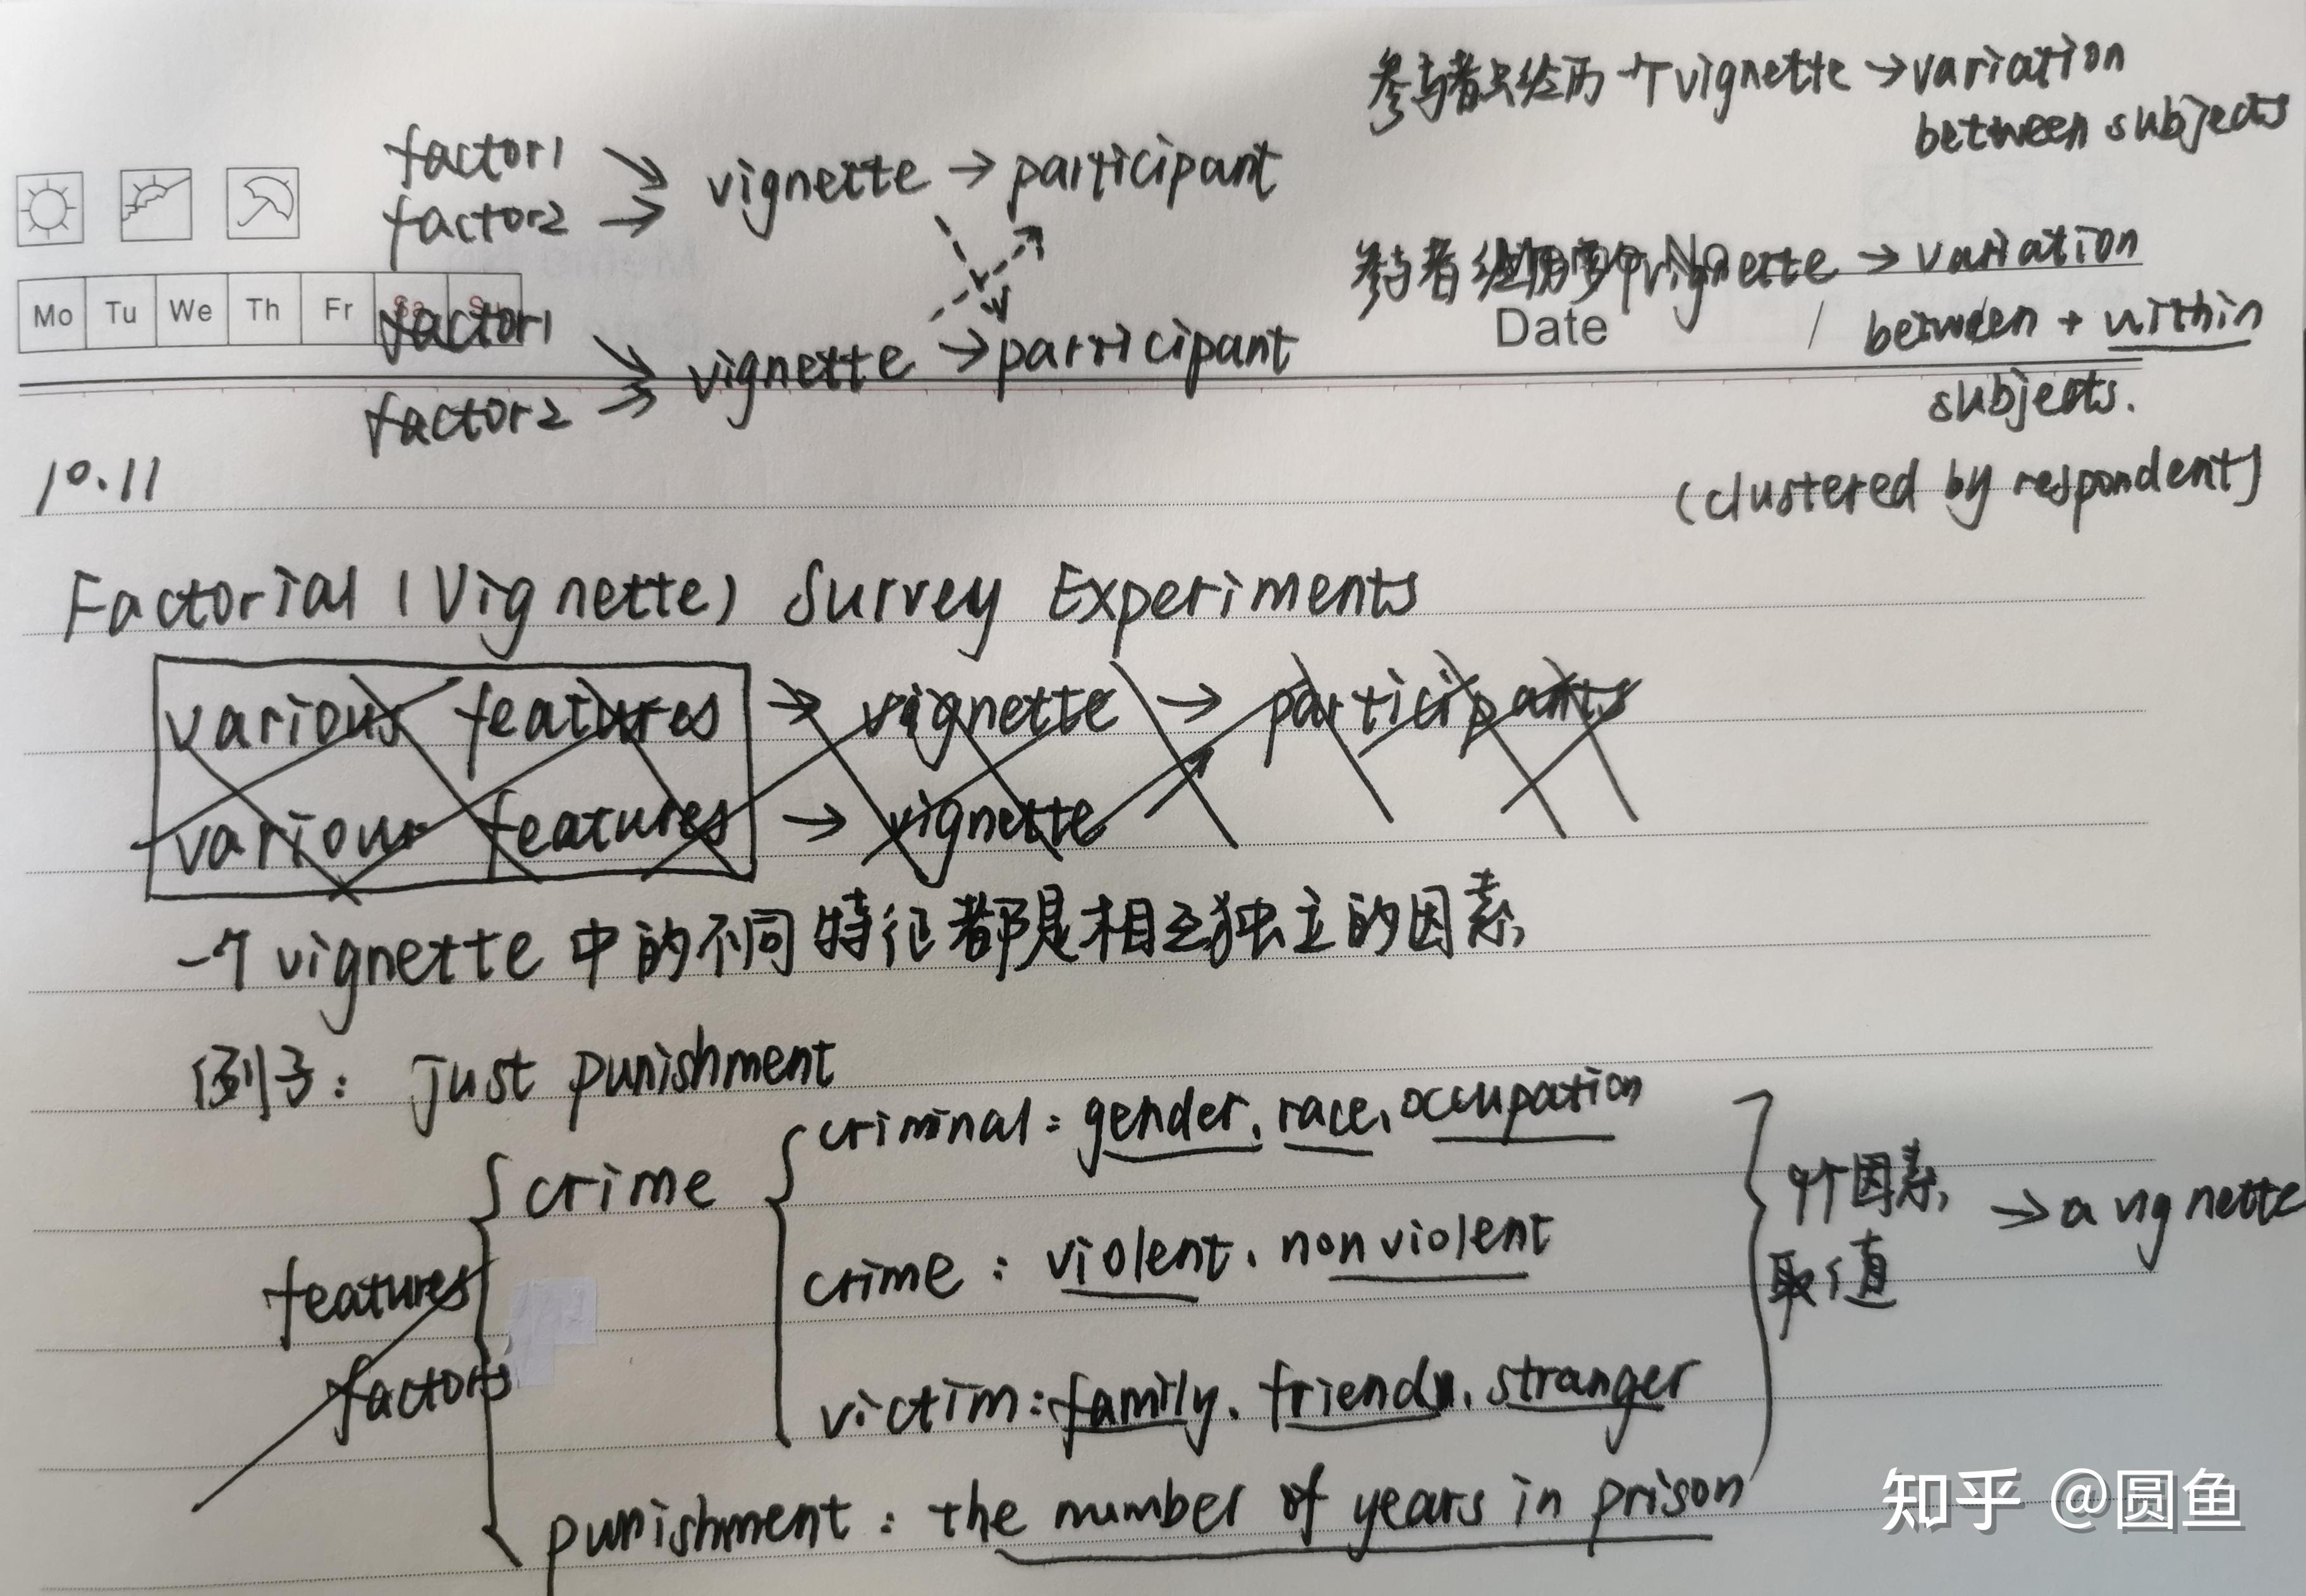 参与者只经历一个vignette → variation
between subjects
factor1
factor2 → vignette → participant
参与者经历多个vignette → variation
between + within
subjects.
(clustered by respondent)
Mo Tu We Th Fr Sa Su
No
Date /
factor1
factor2 → vignette → participant
10.11
Factorial (Vignette) Survey Experiments
various features → vignette → participants
various features → vignette
一个vignette中的不同特征都是相互独立的因素
例子: just punishment
crime
criminal: gender, race, occupation
crime: violent, nonviolent
victim: family, friend, stranger
features
factors
punishment: the number of years in prison
个因素
取值
→ a vignette
知乎 @圆鱼